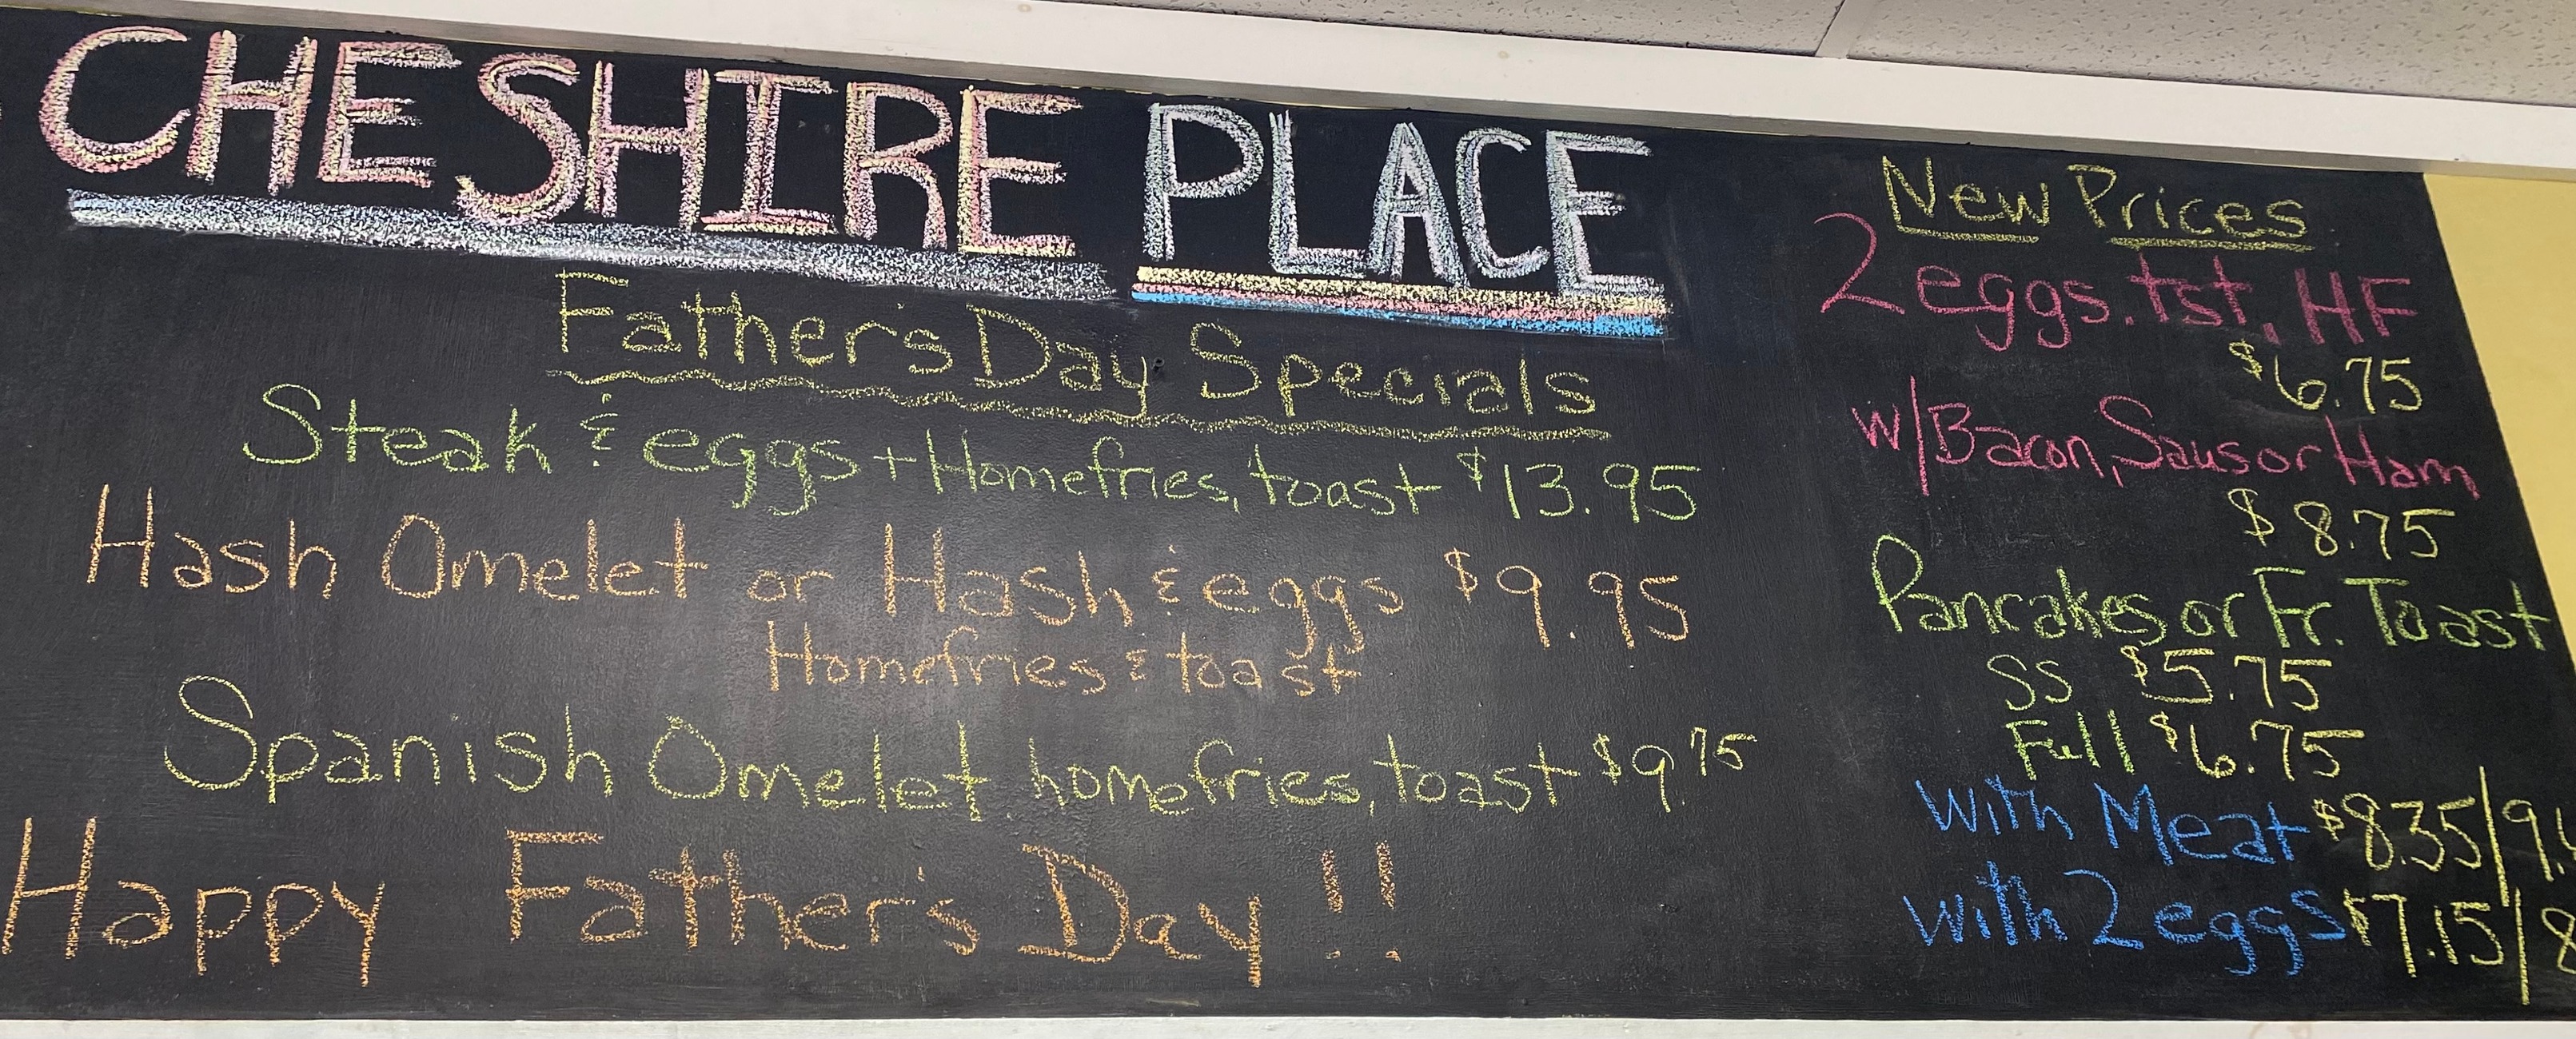 CHESHIRE PLACE
Father's Day Specials
Steak & eggs + Homefries, toast $13.95
Hash Omelet or Hash & eggs $9.95
Homefries & toast
Spanish Omelet homefries, toast $9 75
Happy Father's Day!!
New Prices
2 eggs. tst. HF
$6.75
w/Bacon, Saus or Ham
$8.75
Pancakes or Fr. Toast
SS $5.75
Full $6.75
With Meat $8.35/9.
with 2 eggs $7.15/8